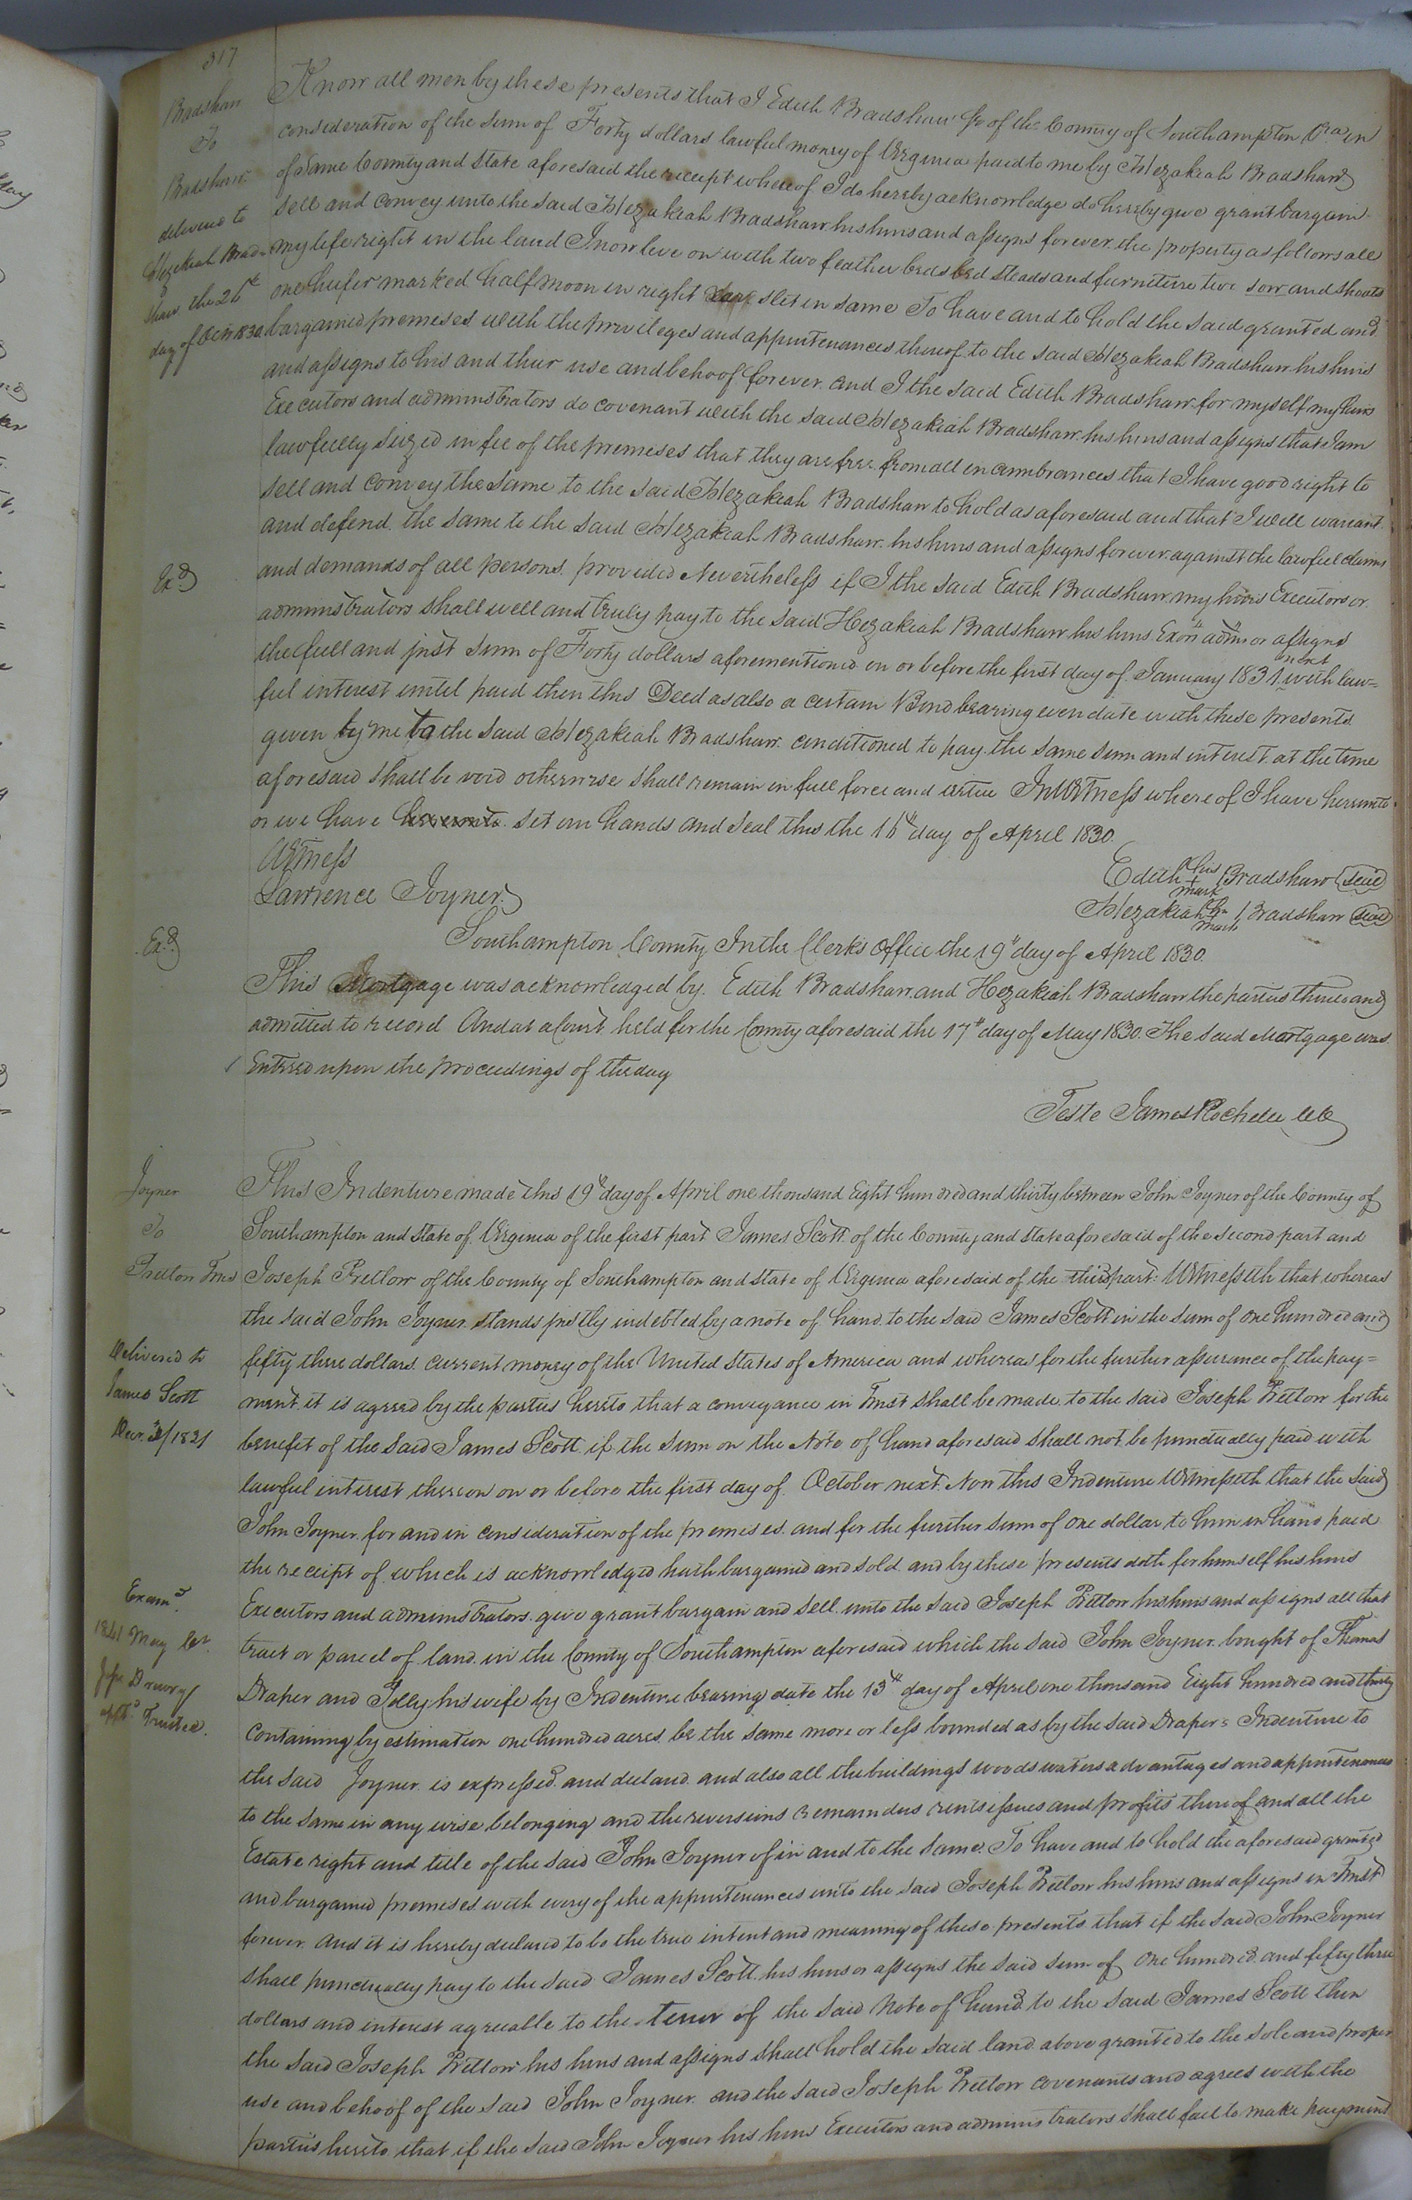 317
Bradshaw
To
Bradshaw
delivered to
Hezekiah Brad-
shaw the 26th
day of Octr 1830
Know all men by these presents that I Edith Bradshaw Jr of the County of Southampton Va in
consideration of the sum of Forty dollars lawful money of Virginia paid to me by Hezakiah Bradshaw
of same County and State aforesaid the receipt whereof I do hereby acknowledge do hereby give grant bargain
sell and convey unto the said Hezakiah Bradshaw his heirs and assigns forever the property as follows all
my life right in the land I now live on with two feather beds bed steads and furniture two sow and shoats
one heifer marked half moon in right ear slit in same To have and to hold the said granted and
bargained premeses with the privileges and appurtenances thereof to the said Hezakiah Bradshaw his heirs
and assigns to his and their use and behoof forever. And I the said Edith Bradshaw for myself my heirs
Executors and administrators do covenant with the said Hezakiah Bradshaw his heirs and assigns that I am
lawfully seized in fee of the premeses that they are free from all incumbrances that I have good right to
sell and convey the same to the said Hezakiah Bradshaw to hold as aforesaid and that I will warrant
and defend the same to the said Hezakiah Bradshaw his heirs and assigns forever against the lawful claims
and demands of all persons provided Nevertheless if I the said Edith Bradshaw my heirs Executors or
administrators shall well and truly pay to the said Hezakiah Bradshaw his heirs Exors admrs or assigns
the full and just sum of Forty dollars aforementioned on or before the first day of January 1831 next with law=
ful interest until paid then this Deed as also a certain Bond bearing even date with these presents
given by me to the said Hezakiah Bradshaw conditioned to pay the same sum and interest at the time
aforesaid shall be void otherwise shall remain in full force and virtue In Witness whereof I have hereunto
or we have hereunto set our hands and seal this the 16th day of April 1830.
Exd
Witness
Edith his + mark Bradshaw seal
Lawrence Joyner
Hezakiah his + mark Bradshaw seal
Exd
Southampton County In the Clerks Office the 19th day of April 1830.
This Mortgage was acknowledged by Edith Bradshaw and Hezakiah Bradshaw the parties thereto and
admitted to record And at a Court held for the County aforesaid the 17th day of May 1830. The said Mortgage was
Entered upon the proceedings of the day
Teste James Rochelle CC
Joyner
To
Pretlow Trus
Delivered to
James Scott
Decr 31/1831
Examd
1841 May 1st
Jas Drewry
apptd Trustee.
This Indenture made this 19th day of April one thousand Eight hundred and thirty between John Joyner of the County of
Southampton and State of Virginia of the first part James Scott of the County and State aforesaid of the second part and
Joseph Pretlow of the County of Southampton and State of Virginia aforesaid of the third part: Witnesseth that whereas
the said John Joyner stands justly indebted by a note of hand to the said James Scott in the sum of one hundred and
fifty three dollars current money of the United States of America and whereas for the further assurance of the pay=
ment it is agreed by the parties hereto that a conveyance in Trust shall be made to the said Joseph Pretlow for the
benefit of the said James Scott if the sum on the Note of hand aforesaid shall not be punctually paid with
lawful interest thereon on or before the first day of October next. Now this Indenture Witnesseth that the said
John Joyner for and in consideration of the premises and for the further sum of one dollar to him in hand paid
the receipt of which is acknowledged hath bargained and sold and by these presents doth for himself his heirs
Executors and administrators give grant bargain and sell unto the said Joseph Pretlow his heirs and assigns all that
tract or parcel of land in the County of Southampton aforesaid which the said John Joyner bought of Thomas
Draper and Polly his wife by Indenture bearing date the 13th day of April one thousand Eight hundred and thirty
containing by estimation one hundred acres be the same more or less bounded as by the said Draper's Indenture to
the said Joyner is expressed and declared and also all the buildings woods waters advantages and appurtenances
to the same in any wise belonging and the reversions remainders rents issues and profits thereof and all the
Estate right and title of the said John Joyner of in and to the same. To have and to hold the aforesaid granted
and bargained premises with every of the appurtenances unto the said Joseph Pretlow his heirs and assigns in Trust
forever. And it is hereby declared to be the true intent and meaning of these presents that if the said John Joyner
shall punctually pay to the said James Scott his heirs or assigns the said sum of one hundred and fifty three
dollars and interest agreeable to the tenor of the said Note of hand to the said James Scott then
the said Joseph Pretlow his heirs and assigns shall hold the said land above granted to the sole and proper
use and behoof of the said John Joyner. and the said Joseph Pretlow covenants and agrees with the
parties hereto that if the said John Joyner his heirs Executors and administrators shall fail to make payment